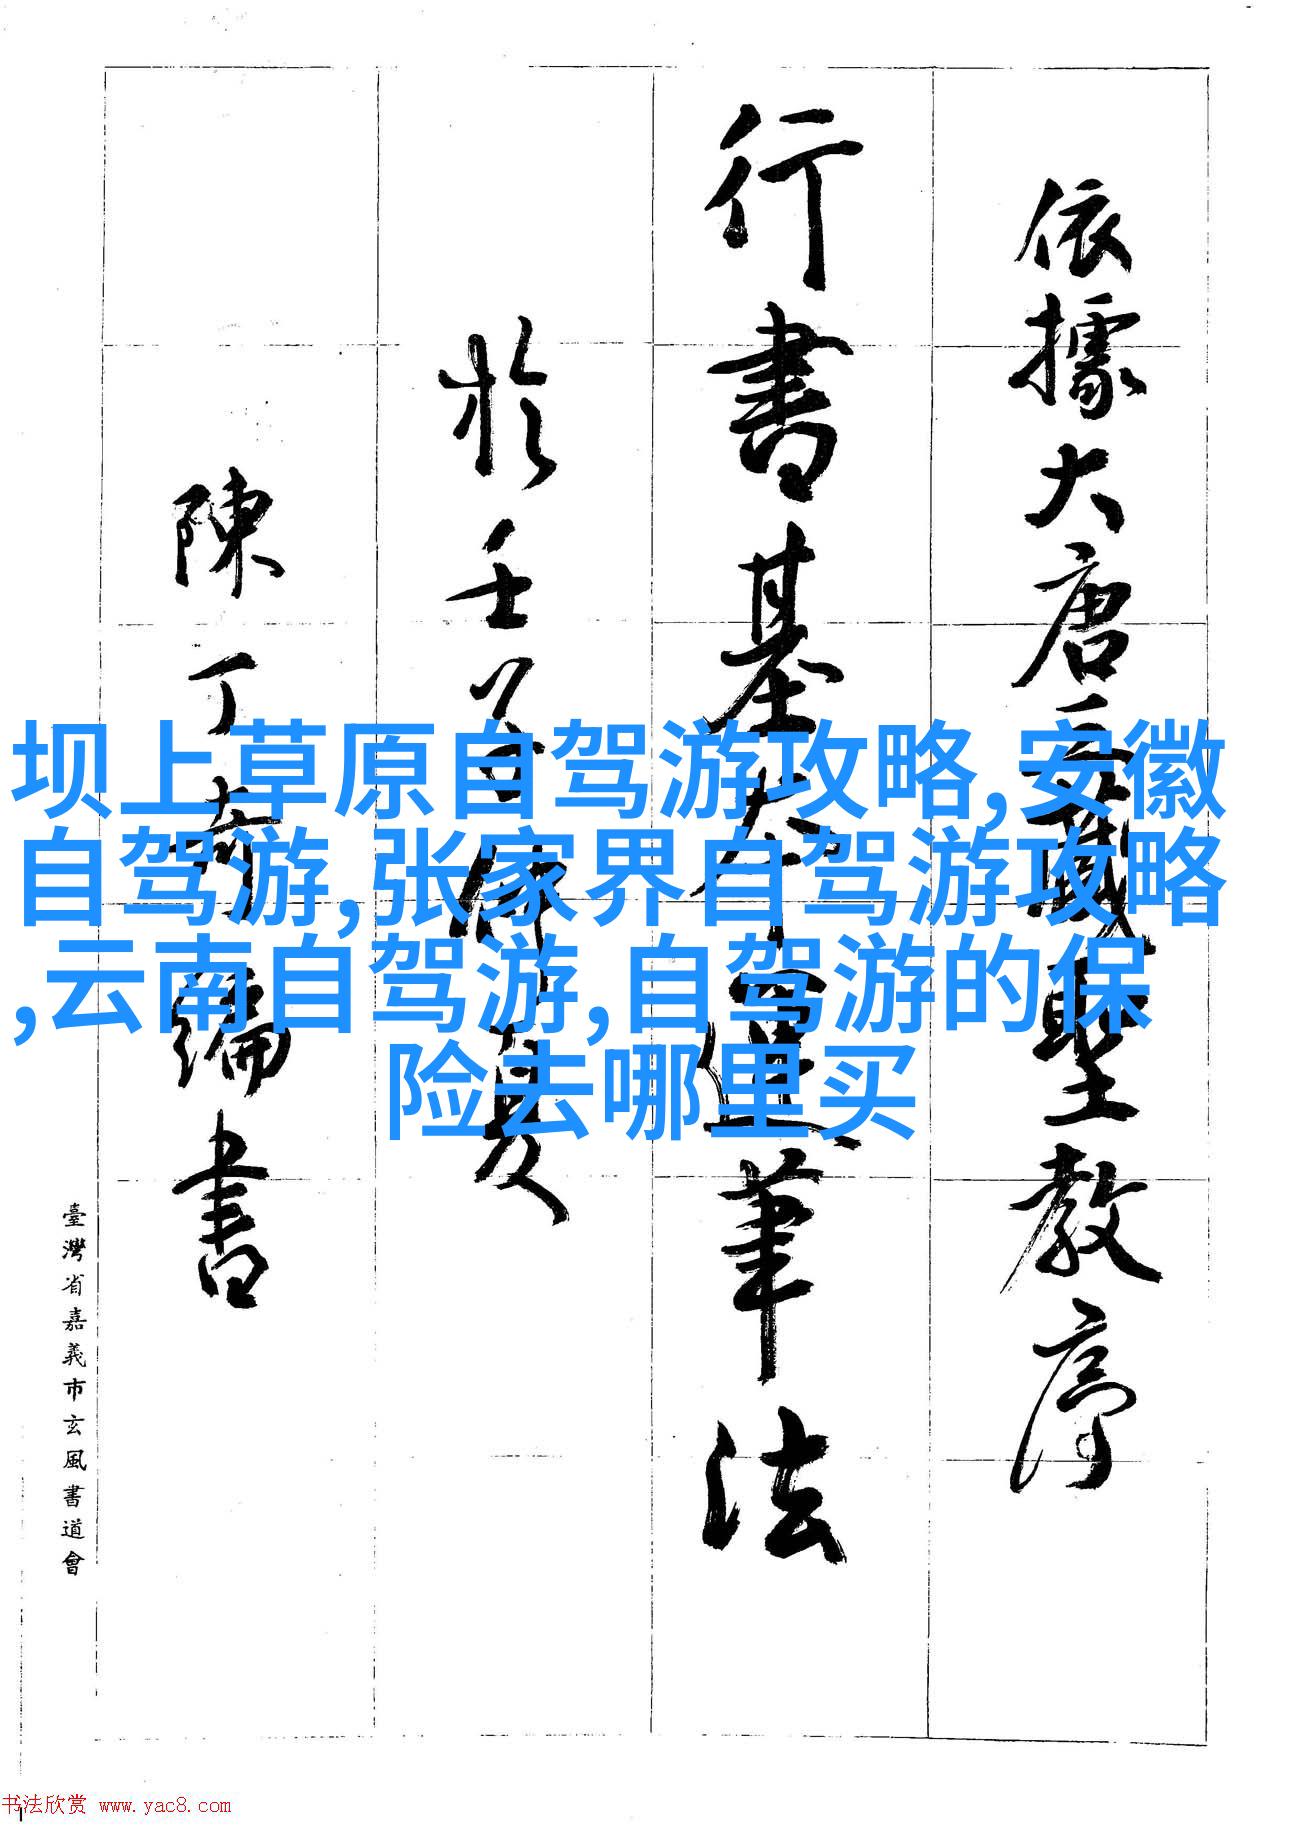 依據大唐三藏聖教序
行書基本運筆法
於壬子仲夏
陳丁奇編書
臺灣省嘉義市玄風書道會
坝上草原自驾游攻略,安徽
自驾游,张家界自驾游攻略
,云南自驾游,自驾游的保
险去哪里买
书法欣赏 www.yac8.com